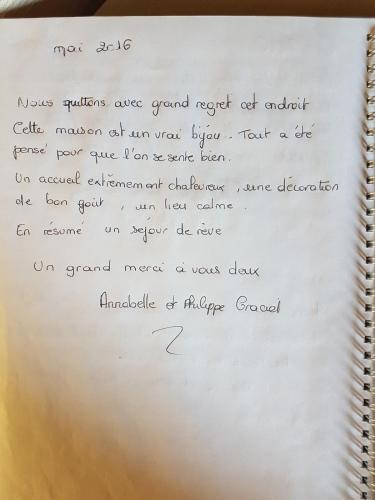 mai 2016
Nous quittons avec grand regret cet endroit
Cette maison est un vrai bijou. Tout a été
pensé pour que l'on se sente bien.
Un accueil extrêmement chaleureux, une décoration
de bon goût, un lieu calme.
En résumé un séjour de rêve
Un grand merci à vous deux
Annabelle et Philippe